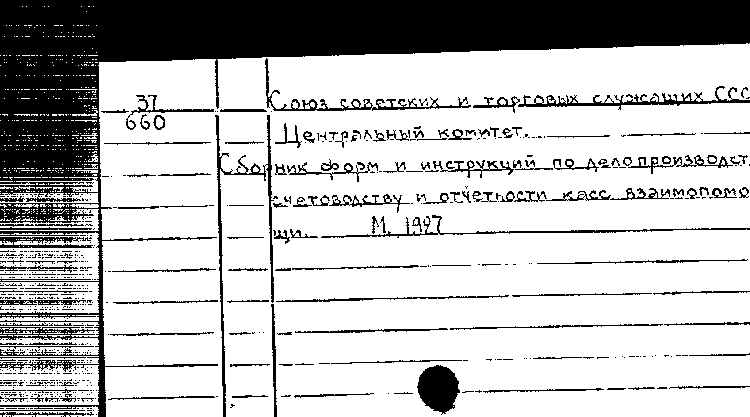 37
660
Союз советских и торговых служащих ССС
Центральный комитет.
Сборник форм и инструкций по делопроизводст
счетоводству и отчетности касс взаимопомо
щи. М. 1927